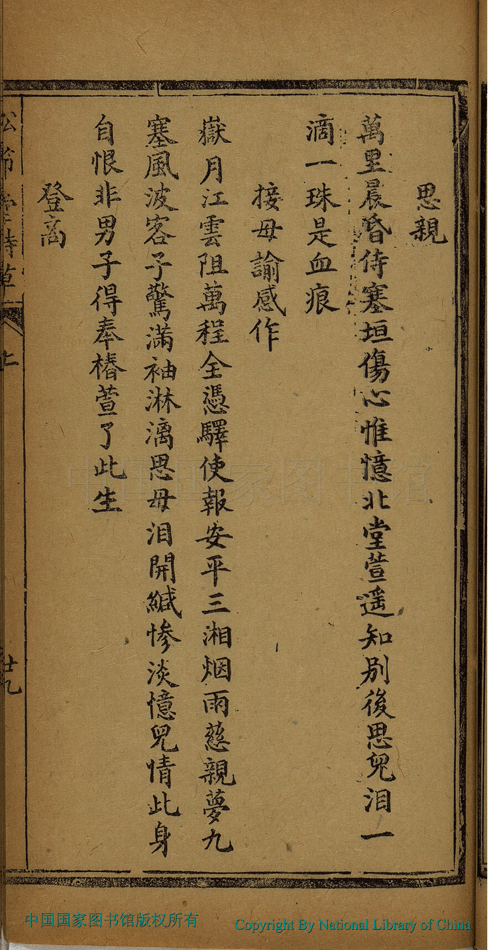 思親
萬里晨昏侍塞垣傷心惟憶北堂萱遥知別後思兒泪一
滴一珠是血痕
接母諭感作
嶽月江雲阻萬程全憑驛使報安平三湘烟雨慈親夢九
塞風波客子驚滿袖淋漓思母泪開緘惨淡憶兒情此身
自恨非男子得奉椿萱了此生
登高
松節堂詩草
上
廿九
中国国家图书馆
中国国家图书馆版权所有
Copyright By National Library of China